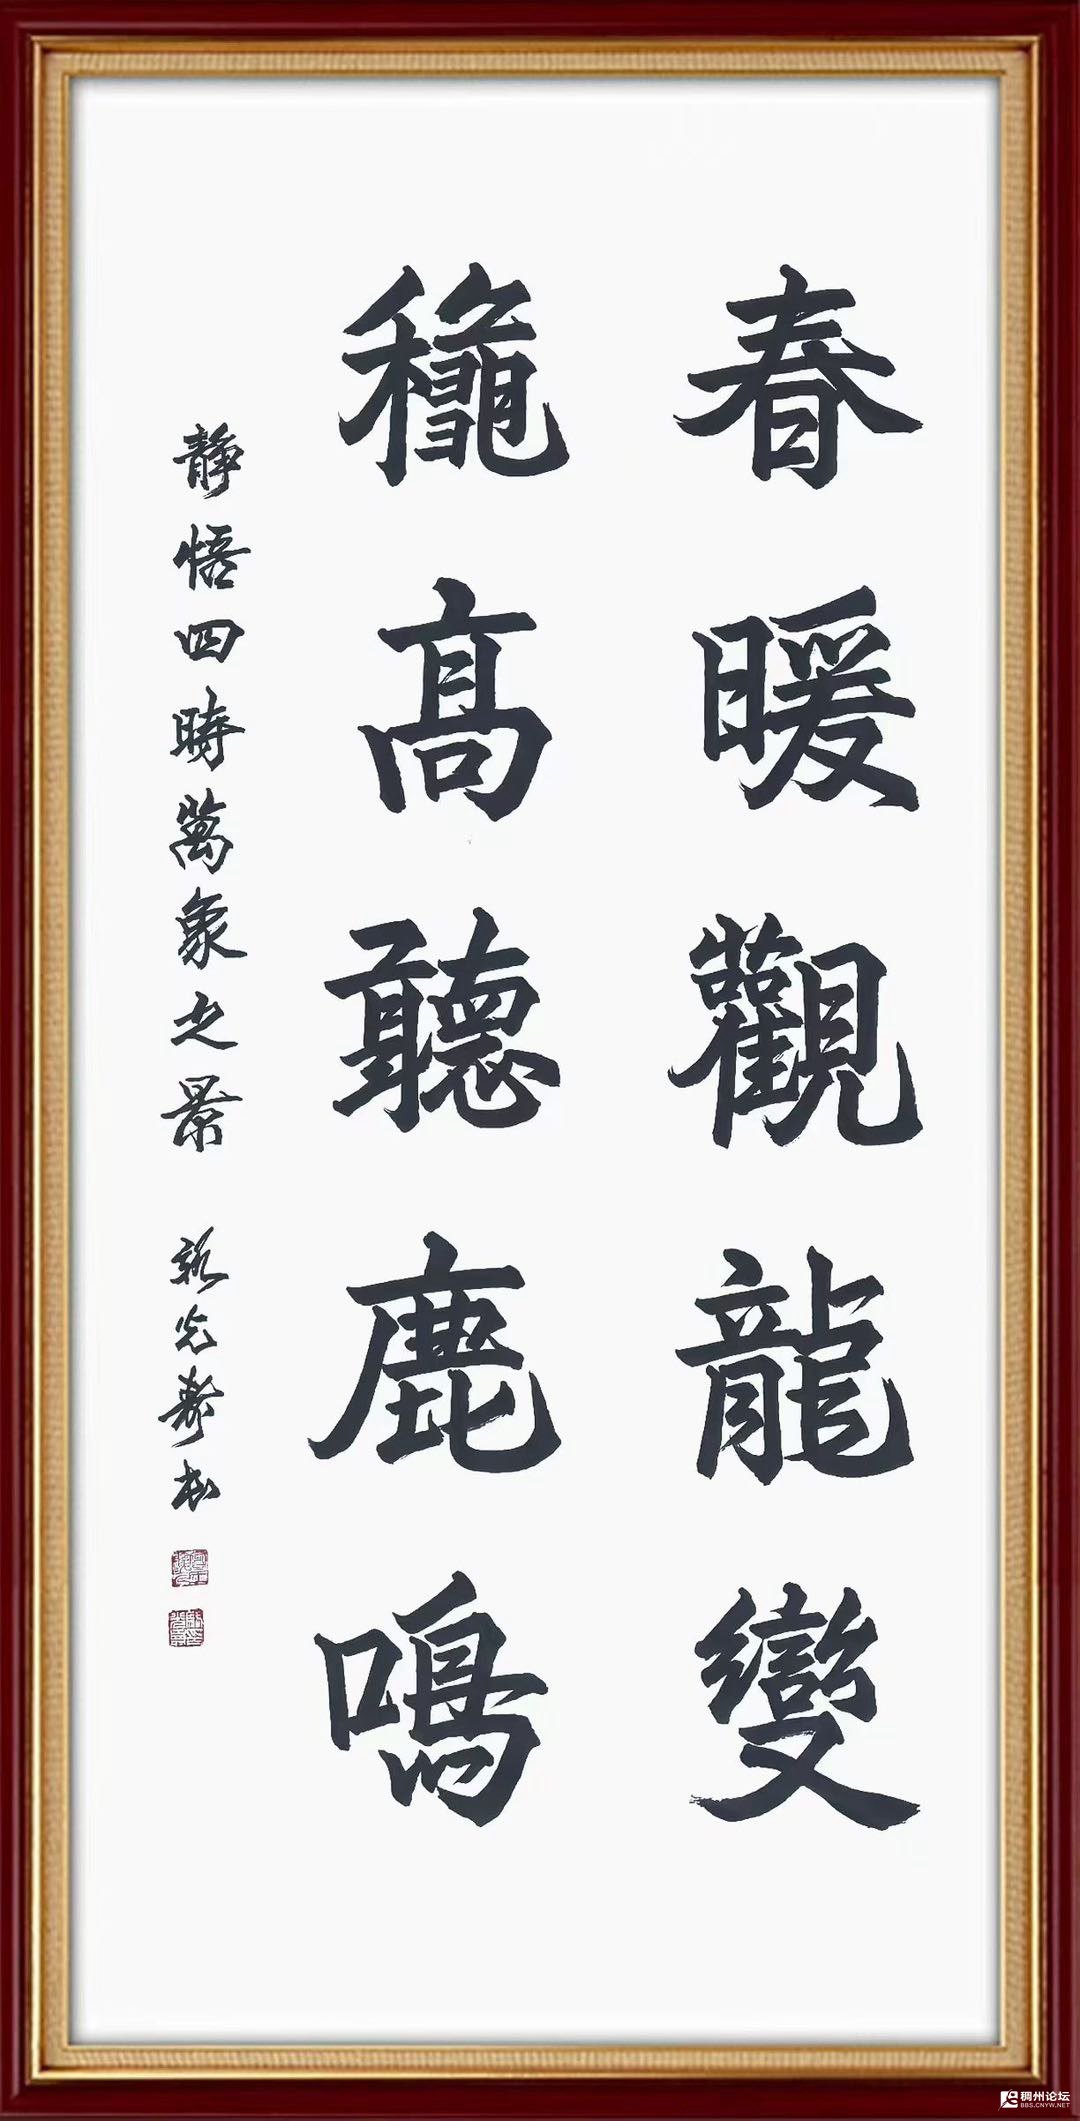 春暖觀龍變
龝髙聽鹿鳴
靜悟四時萬象之景
稠州论坛
BBS.CNYW.NET